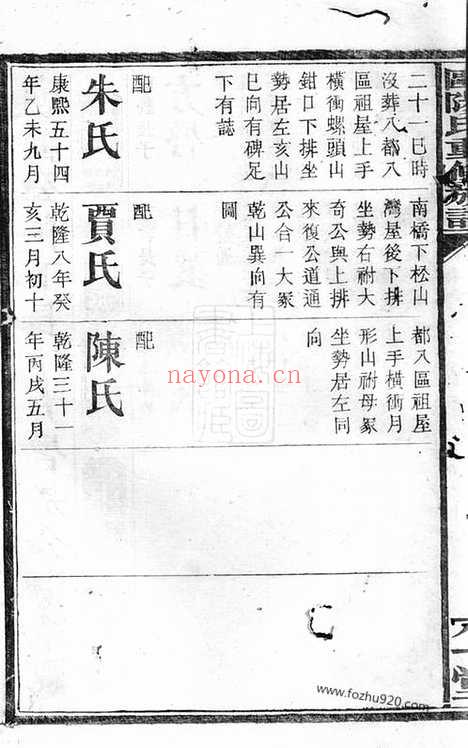 二十一巳時
沒葬八都八
區祖屋上手
橫衝螺頭山
鉗口下排坐
勢居左亥山
巳向有碑足
下有誌
配
朱氏
康熙五十四
年乙未九月
南橋下松山
灣屋後下排
坐勢右祔大
奇公與上排
來復公道通
公合一大冢
乾山巽向有
圖
配
賈氏
乾隆八年癸
亥三月初十
都八區祖屋
上手橫衝月
形山祔母冢
坐勢居左同
向
配
陳氏
乾隆三十一
年丙戌五月
nayona.cn
www.fozhu920.com